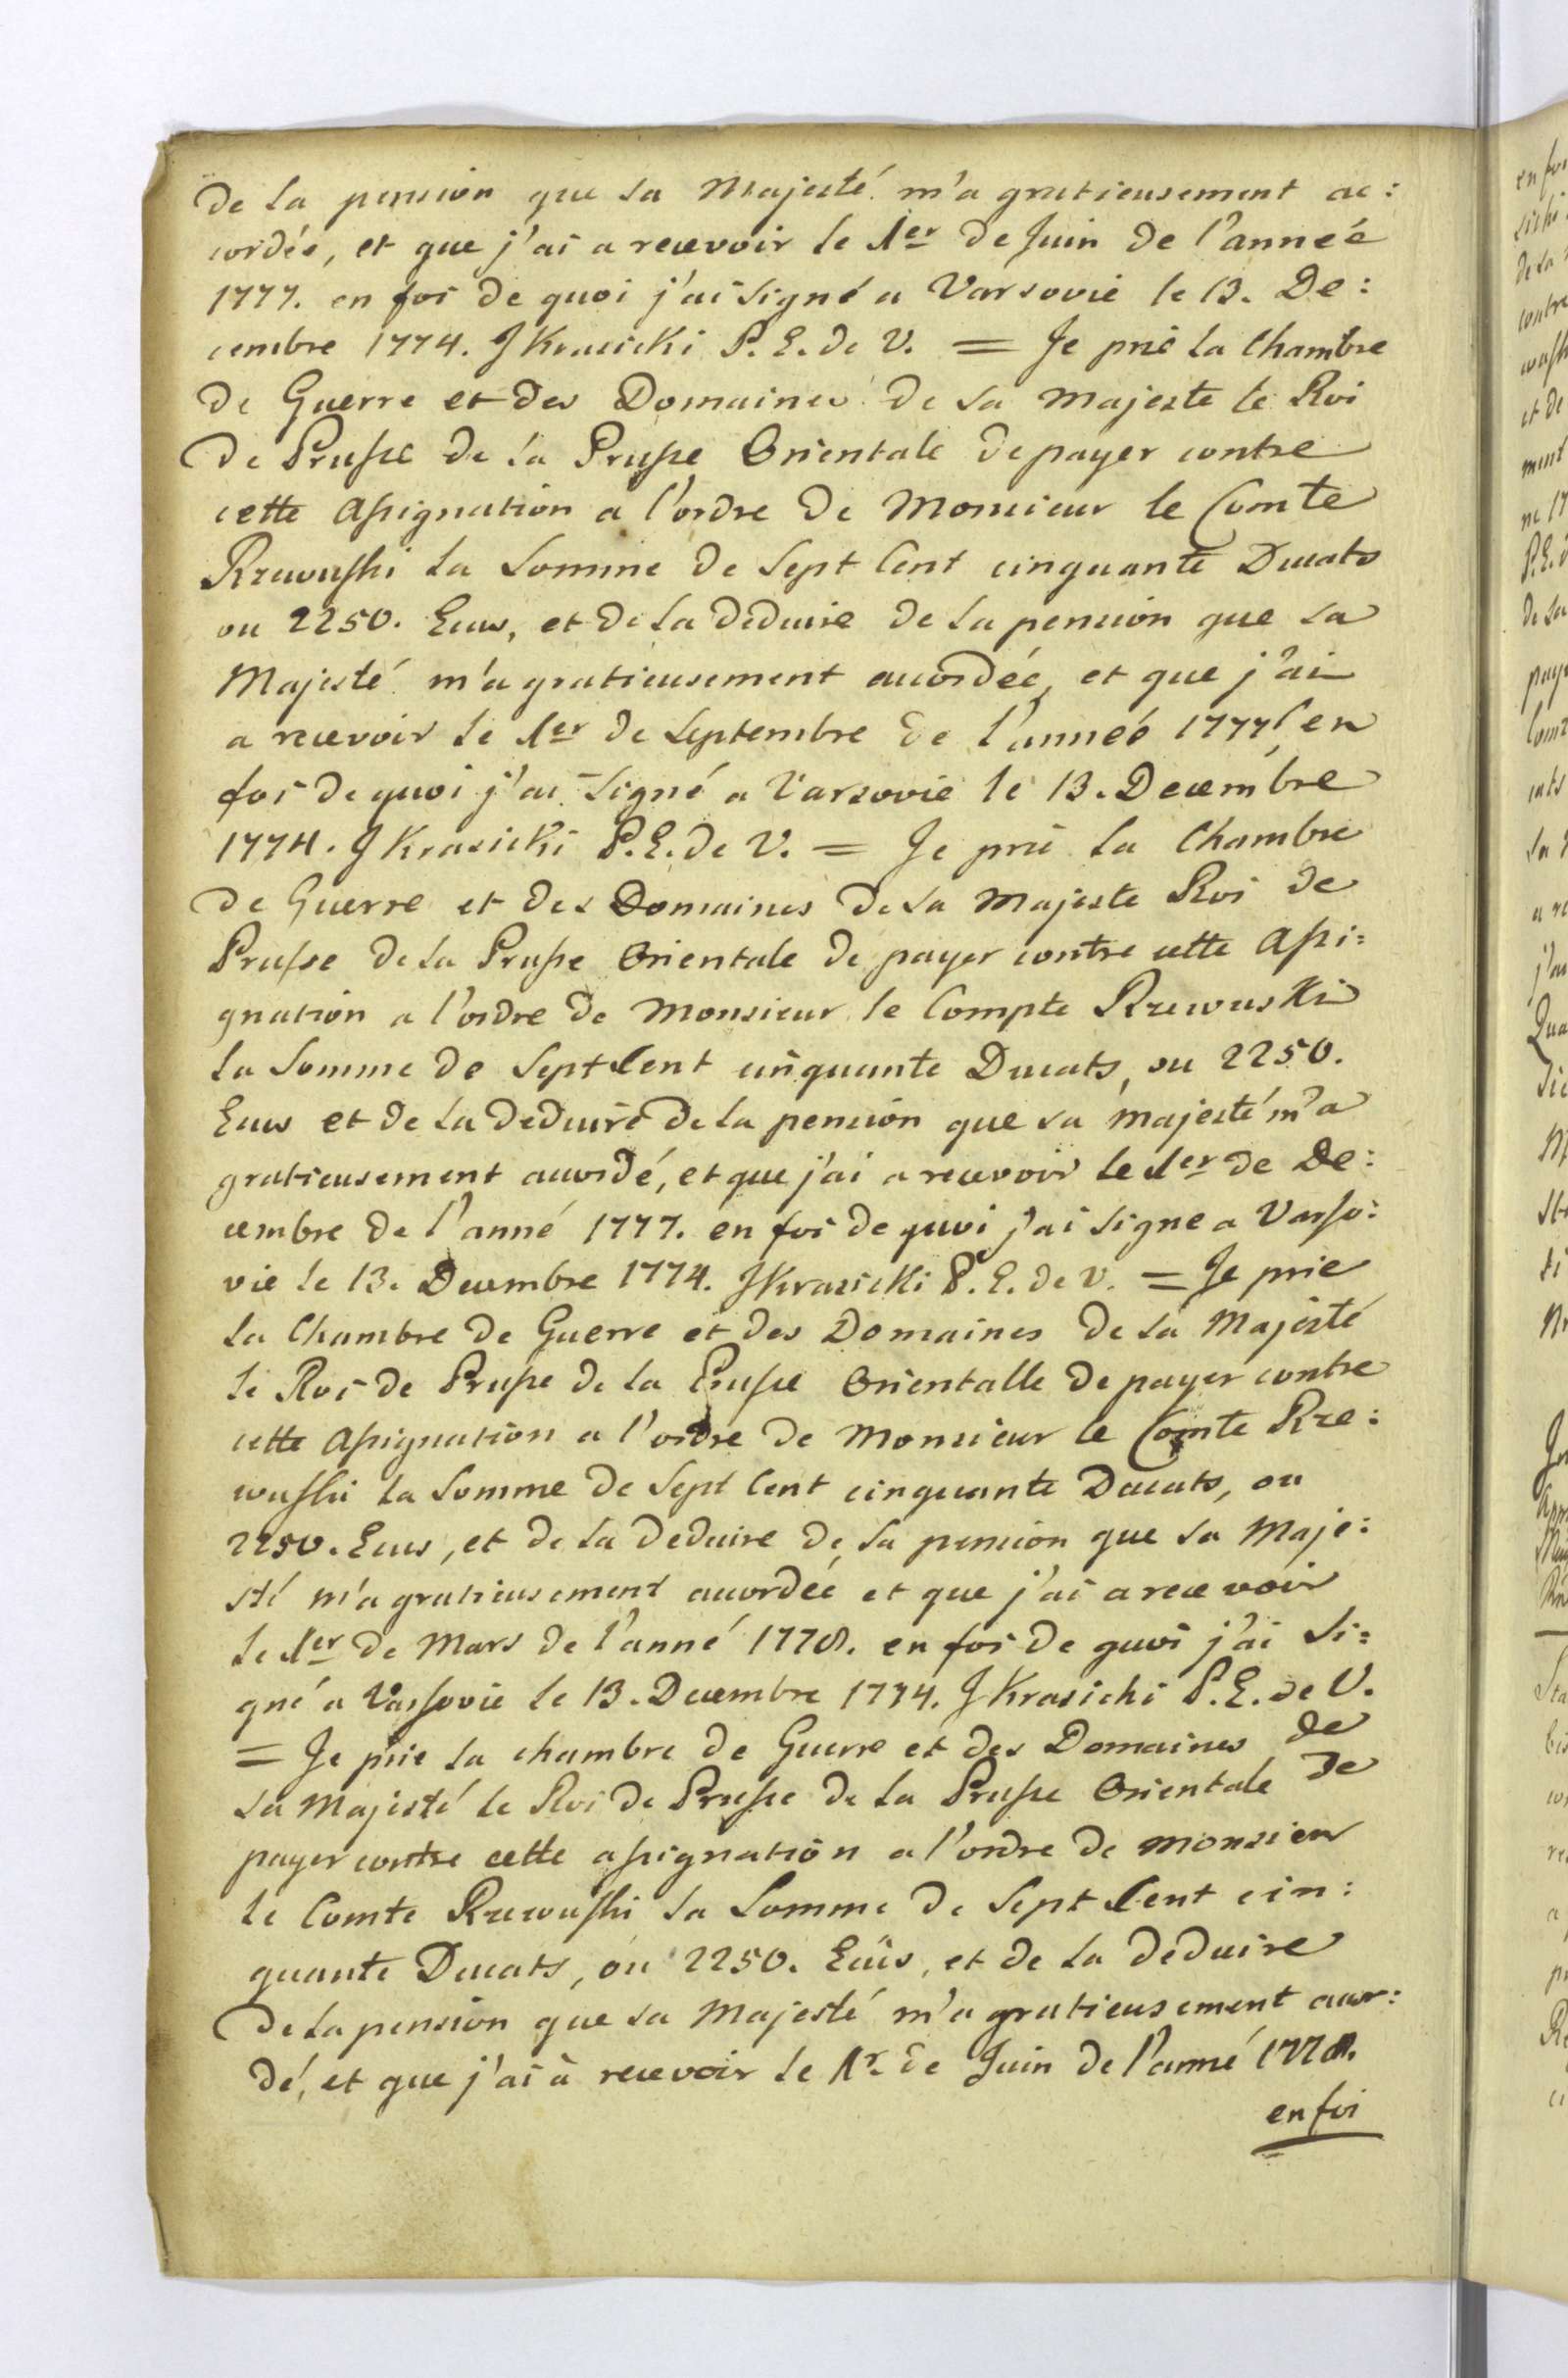 de la pension que sa Majesté m'a gratieusement ac:
cordée, et que j'ai a recevoir le 1er de Juin de l'anneé
1777. en foi de quoi j'ai signé a Varsovie le 13. De:
cembre 1774. J Krasicki P. E. de V. = Je prie la Chambre
de Guerre et des Domaines de sa Majeste le Roi
de Prusse de la Prusse Orientale de payer contre
cette Assignation a l'ordre de Monsieur le Comte
Rzewuski la Somme de Sept Cent cinquante Ducats
ou 2250. Ecus, et de la deduire de la pension que sa
Majesté m'a gratieusement accordée, et que j'ai
a recevoir le 1er de Septembre de l'anneé 1777, en
foi de quoi j'ai signé a Varsovie le 13. Decembre
1774. J Krasicki P. E. de V. = Je prie la Chambre
de Guerre et des Domaines de sa Majeste Roi de
Prusse de la Prusse Orientale de payer contre cette Assi:
gnation a l'ordre de Monsieur le Compte Rzewuski
la Somme de Sept Cent cinquante Ducats, ou 2250.
Ecus et de la deduire de la pension que sa majesté m'a
gratieusement accordé, et que j'ai a recevoir le 1er de De:
cembre de l'anné 1777. en foi de quoi j'ai signe a Varso:
vie le 13. Decembre 1774. J Krasicki P. E. de V. = Je prie
la Chambre de Guerre et des Domaines de sa Majesté
le Roi de Prusse de la Prusse Orientalle de payer contre
cette Assignation a l'ordre de Monsieur le Comte Rze:
wuski la Somme de Sept Cent cinquante Ducats, ou
2250. Ecus, et de la deduire de la pension que sa Maje:
sté m'a gratieusement accordée et que j'ai a recevoir
le 1er de Mars de l'anné 1778. en foi de quoi j'ai si:
gné a Varsovie le 13. Decembre 1774. J Krasicki P. E. de V.
= Je prie la chambre de Guerre et des Domaines de
sa Majesté le Roi de Prusse de la Prusse Orientale de
payer contre cette assignation a l'ordre de Monsieur
le Comte Rzewuski la Somme de Sept Cent cin:
quante Ducats, ou 2250. Ecus, et de la deduire
de la pension que sa Majesté m'a gratieusement accor:
dé, et que j'ai à recevoir le 1r. de Juin de l'anné 1778.
en foi